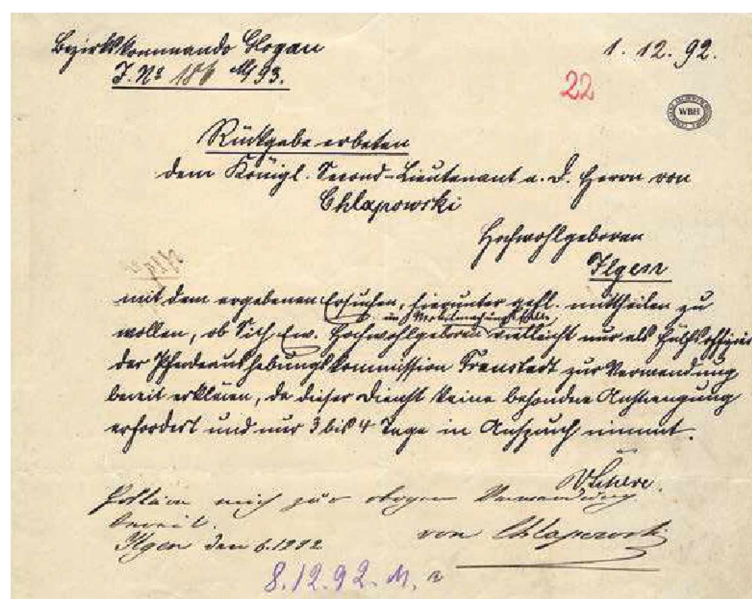 Bezirkskommando Glogau
1. 12. 92.
J. № 186 M/93.
22
WBH
Rückgabe erbeten
dem Königl. Second-Lieutenant a. D. Herrn von
Chlapowski
Hochwohlgeboren
Ilgen
mit dem ergebenen Ersuchen, hierunter gefl. mittheilen zu
im Mobilmachungsfalle,
wollen, ob Sich Ew. Hochwohlgeboren vielleicht nur als Hülfsoffizier
der Pferdeaushebungskommission Fraustadt zur Verwendung
bereit erklären, da dieser Dienst keine besondre Anstrengung
erfordert und nur 3 bis 4 Tage in Anspruch nimmt.
mich zur obigen Verwendung
bereit.
Ilgen den 6.1292
von Chlapowski
8.12.92. M.